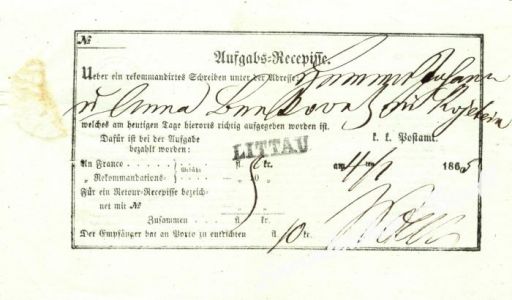 №
Aufgabs-Recepisse.
Ueber ein rekommandirtes Schreiben unter der Adresse Johann
u Anna in Kojetein
welches am heutigen Tage hierorts richtig aufgegeben worden ist.
Dafür ist bei der Aufgabe bezahlt worden:
k. k. Postamt.
LITTAU
An Franco . . . . Gebühr fl. kr.
„ Rekommandations- . . . . — 10 „
am 4/1 1865
Für ein Retour-Recepisse bezeichnet mit №
Zusammen . . . . fl. kr.
Der Empfänger hat an Porto zu entrichten fl. 10 kr.